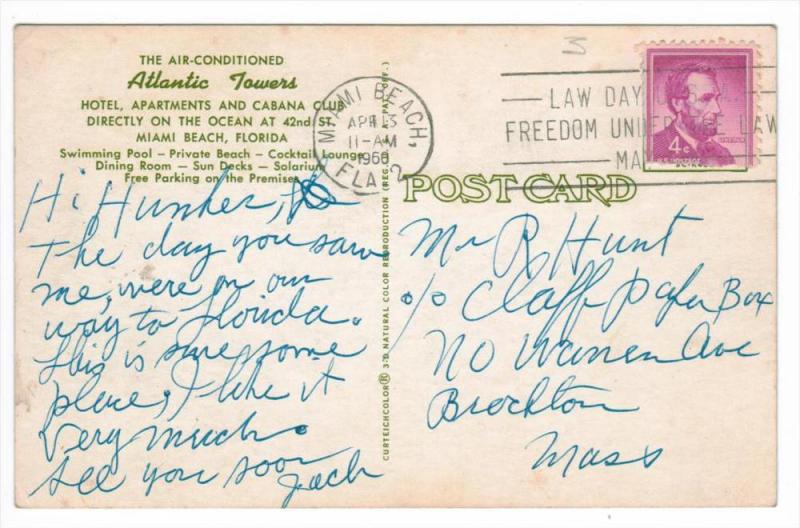 THE AIR-CONDITIONED
Atlantic Towers
HOTEL, APARTMENTS AND CABANA CLUB
DIRECTLY ON THE OCEAN AT 42nd ST.
MIAMI BEACH, FLORIDA
Swimming Pool – Private Beach – Cocktail Lounge
Dining Room – Sun Decks – Solarium
Free Parking on the Premises
Hi Hunkes,
The day you saw
me, were on our
way to Florida.
This is sure some
place, I like it
very much.
See you soon
Jack
CURTEICHCOLOR® 3-D NATURAL COLOR REPRODUCTION (REG. U.S.A. PAT. OFF.)
MIAMI BEACH,
APR 13
11-AM
1960
FLA. 2
LAW DAY
FREEDOM UNDER THE LAW
MA
4¢
U.S. POSTAGE
POST CARD
Mr R Hunt
c/o Claff Paper Box
No Warren Ave
Brockton
Mass